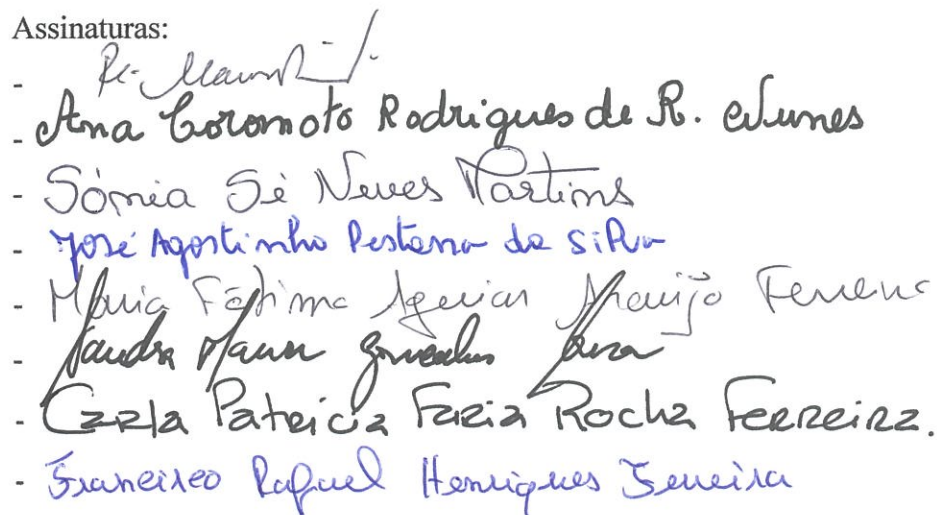 Assinaturas:
-
- Ana Coromoto Rodrigues de R. Nunes
- Sónia Sé Neves Martins
- José Agostinho Pestana da Silva
- Maria Fátima Aguiar Araújo Ferreira
- Sandra Maria Gonçalves
- Carla Patrícia Faria Rocha Ferreira.
- Francisco Rafael Henriques Ferreira